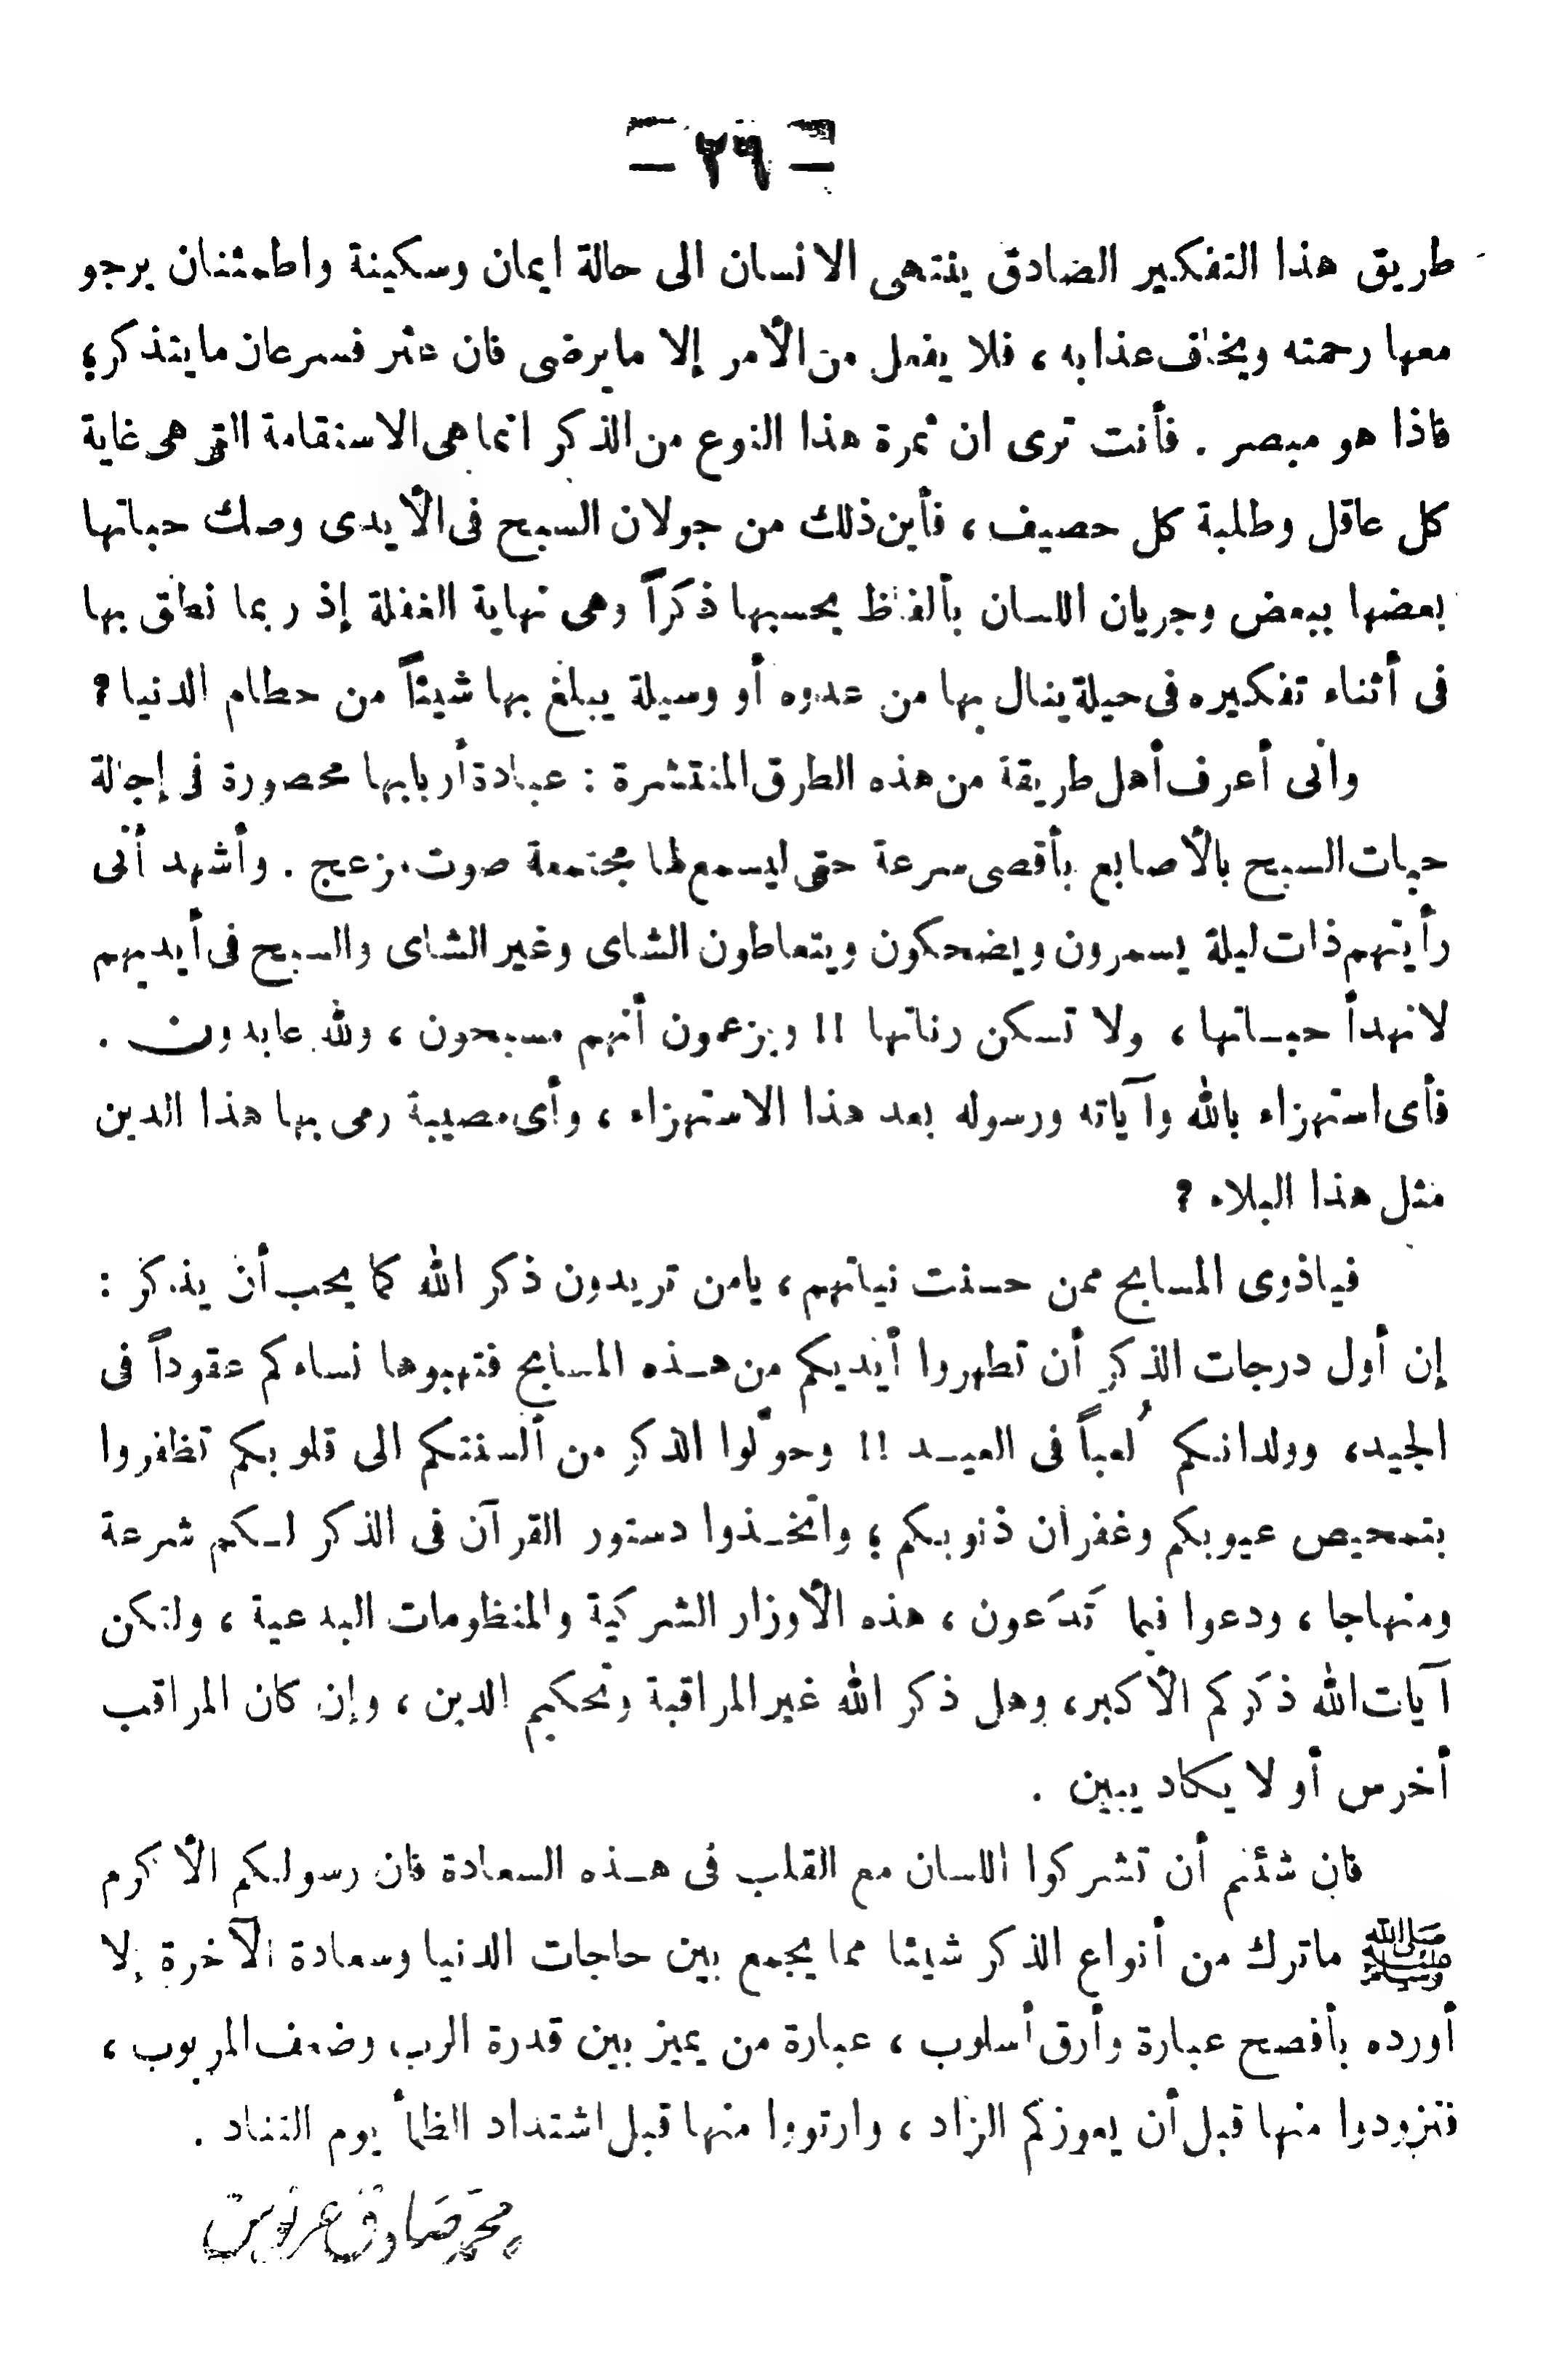 — ٢٩ —
طريق هذا التفكير الصادق ينتهى الانسان الى حالة ايمان وسكينة واطمئنان يرجو
معها رحمته ويخاف عذابه ، فلا يفعل من الأمر إلا ما يرضى فان عثر فسرعان ما يتذكر ؛
فاذا هو مبصر . فأنت ترى ان ثمرة هذا النوع من الذكر انما هى الاستقامة التى هى غاية
كل عاقل وطلبة كل حصيف ، فأين ذلك من جولان السبح فى الأيدى وصك حباتها
بعضها ببعض وجريان اللسان بألفاظ يحسبها ذكراً وهى نهاية الغفلة إذ ربما نطق بها
فى أثناء تفكيره فى حيلة ينال بها من عدوه أو وسيلة يبلغ بها شيئاً من حطام الدنيا ؟
وانى أعرف أهل طريقة من هذه الطرق المنتشرة : عبادة أربابها محصورة فى إجالة
حبات السبح بالأصابع بأقصى سرعة حتى ليسمع لها مجتمعة صوت مزعج . وأشهد أنى
رأيتهم ذات ليلة يسمرون ويضحكون ويتعاطون الشاى وغير الشاى والسبح فى أيديهم
لا تهدأ حباتها ، ولا تسكن رناتها !! ويزعمون أنهم مسبحون ، ولله عابدون .
فأى استهزاء بالله وآياته ورسوله بعد هذا الاستهزاء ، وأى مصيبة رمى بها هذا الدين
مثل هذا البلاء ؟
فياذوى المسابح ممن حسنت نياتهم ، يامن تريدون ذكر الله كما يحب أن يذكر :
إن أول درجات الذكر أن تطهروا أيديكم من هذه المسابح فتهبوها نساءكم عقوداً فى
الجيد ، وولدانكم لُعباً فى العيد !! وحوّلوا الذكر من ألسنتكم الى قلوبكم تظفروا
بتمحيص عيوبكم وغفران ذنوبكم ؛ واتخذوا دستور القرآن فى الذكر لكم شرعة
ومنهاجا ، ودعوا فيما تَدَعون ، هذه الأوزار الشركية والمنظومات البدعية ، ولتكن
آيات الله ذكركم الأكبر ، وهل ذكر الله غير المراقبة وتحكيم الدين ، وإن كان المراقب
أخرس أو لا يكاد يبين .
فان شئتم أن تشركوا اللسان مع القلب فى هذه السعادة فان رسولكم الأكرم
ﷺ ماترك من أنواع الذكر شيئا مما يجمع بين حاجات الدنيا وسعادة الآخرة إلا
أورده بأفصح عبارة وأرق أسلوب ، عبارة من يميز بين قدرة الرب وضعف المربوب ،
فتزودوا منها قبل أن يعوزكم الزاد ، وارتووا منها قبل اشتداد الظمأ يوم التناد .
محمد صادق عرنوس